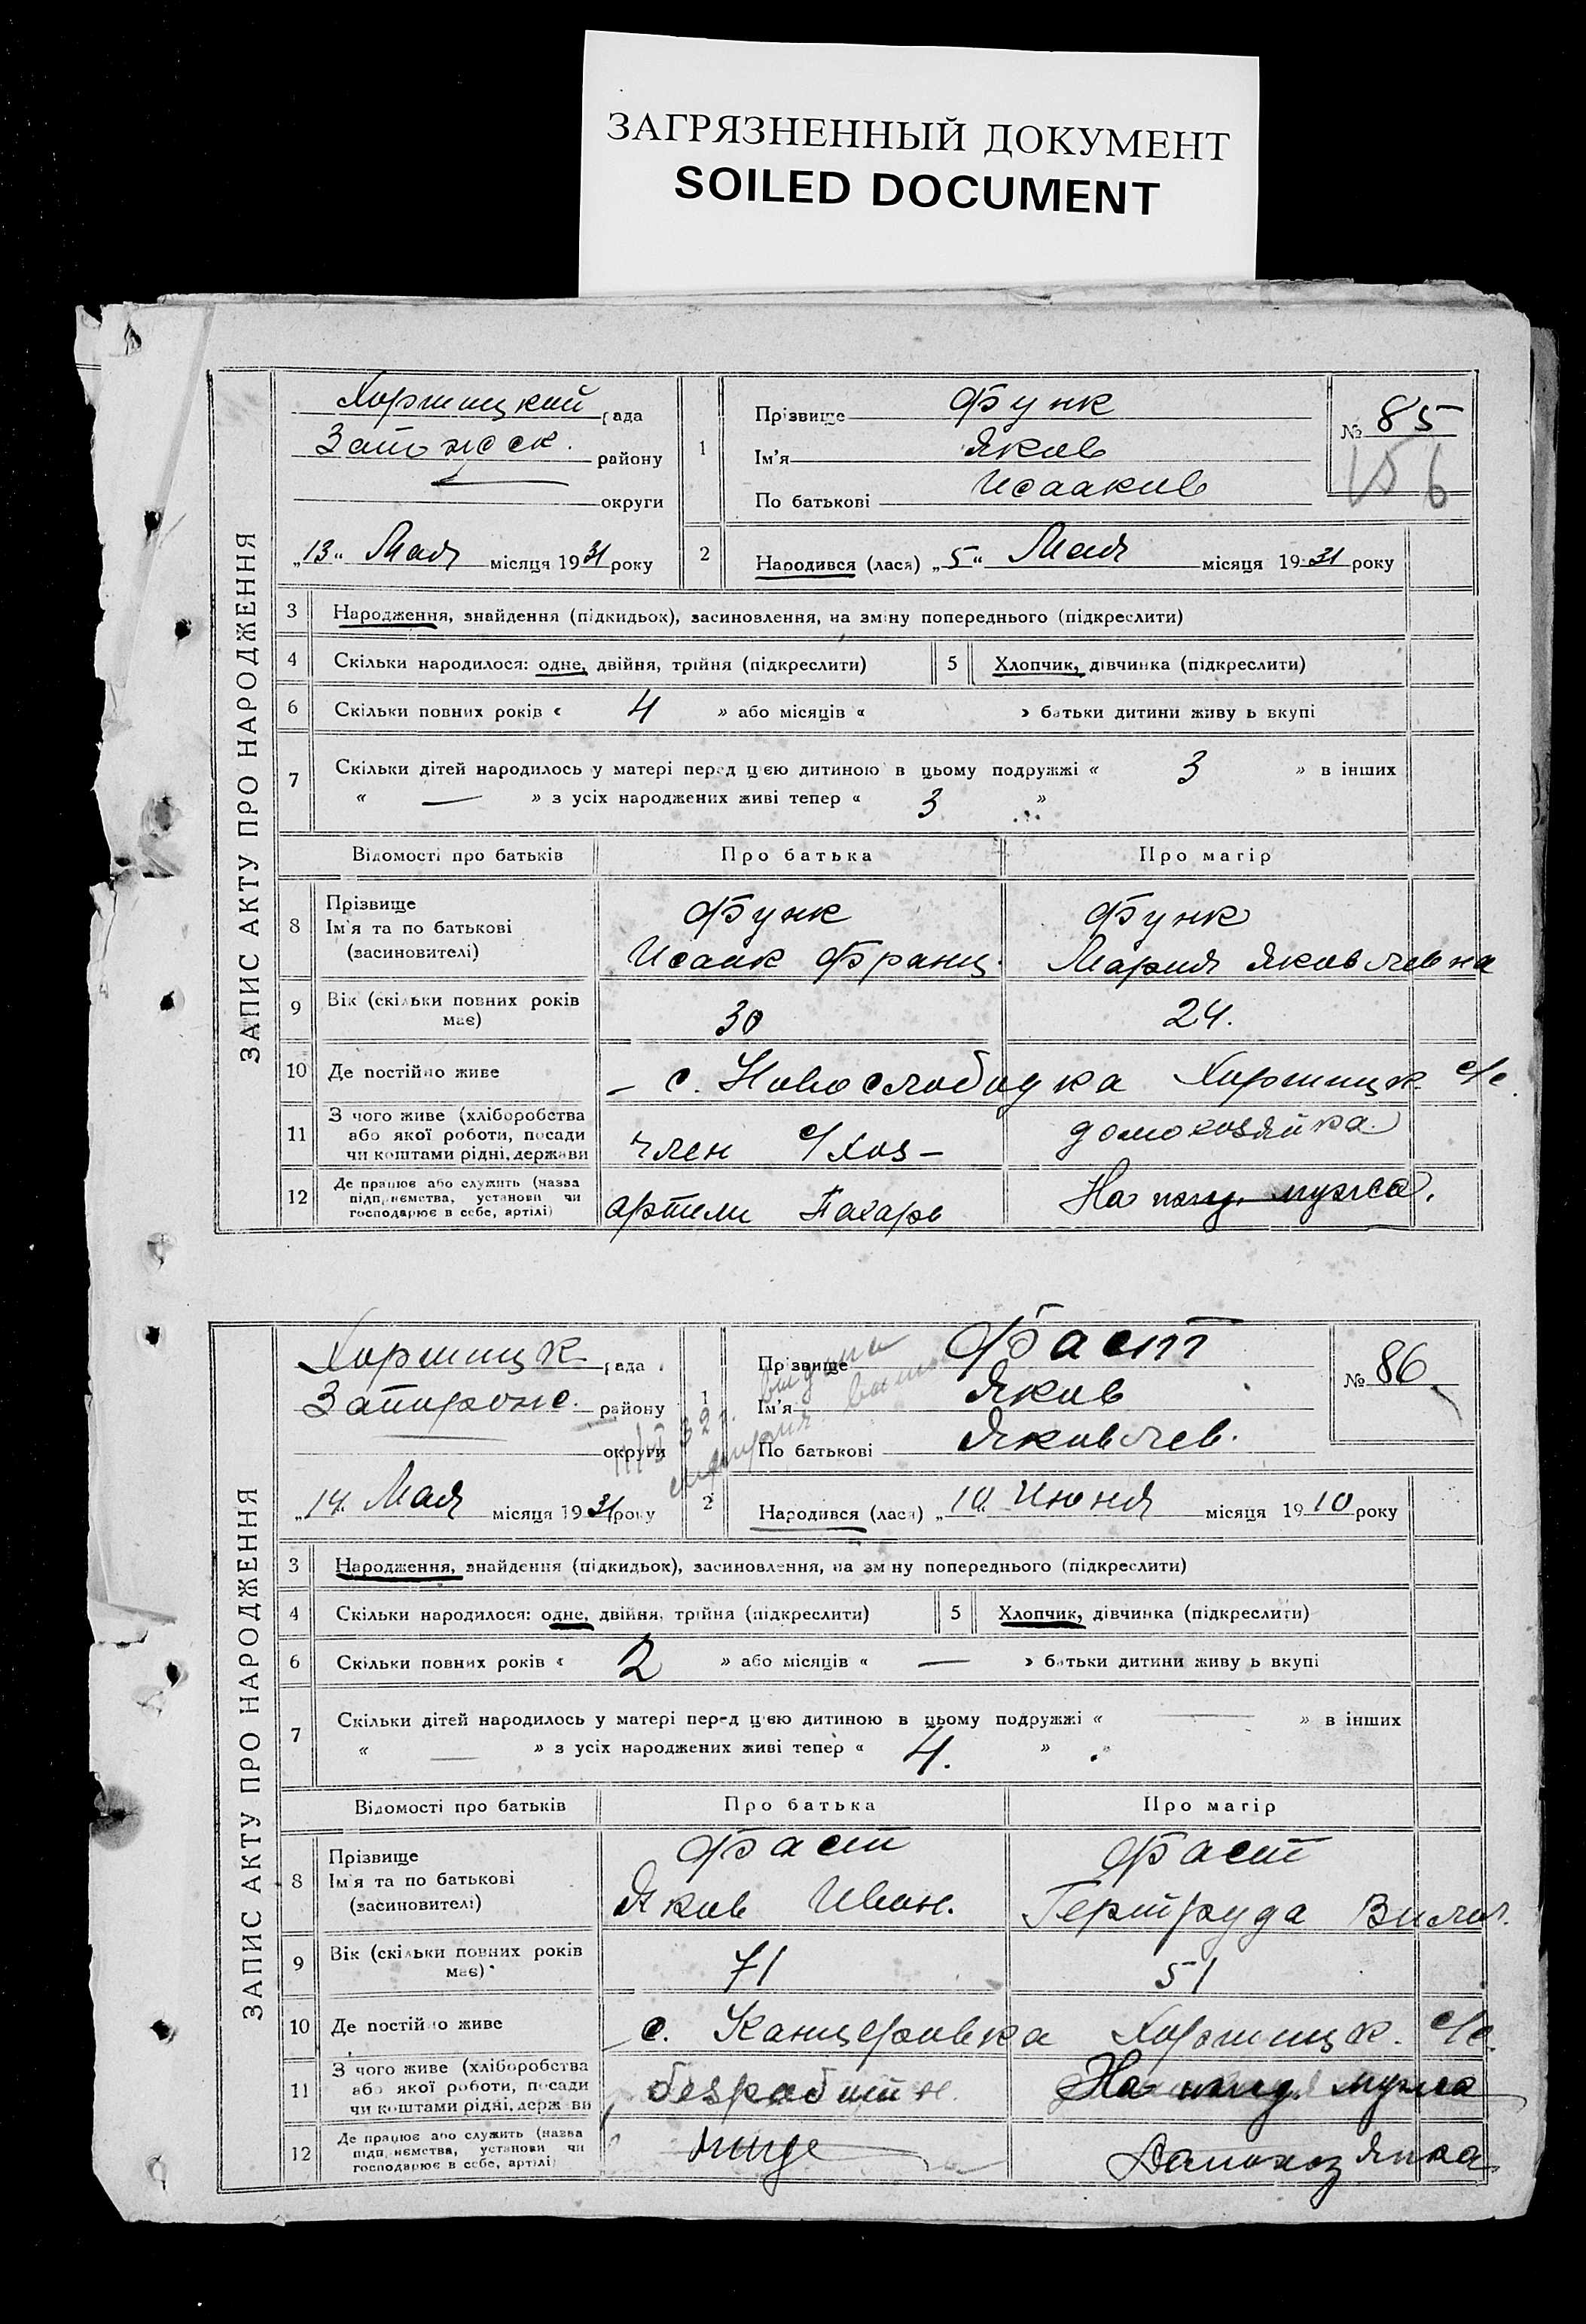 ЗАГРЯЗНЕННЫЙ ДОКУМЕНТ
SOILED DOCUMENT
ЗАПИС АКТУ ПРО НАРОДЖЕННЯ
Хортицкий рада
Запорожск. району
округи
„13“ Мая місяця 1931 року
1
Прізвище Функ
Ім'я Яков
По батькові Исааков
№ 85
156
2 Народився (лася) „5“ Мая місяця 1931 року
3 Народження, знайдення (підкидьок), засиновлення, на зміну попереднього (підкреслити)
4 Скільки народилося: одне, двійня, трійня (підкреслити) 5 Хлопчик, дівчинка (підкреслити)
6 Скільки повних років « 4 » або місяців « » батьки дитини живуть вкупі
7 Скільки дітей народилось у матері перед цією дитиною в цьому подружжі « 3 » в інших
« — » з усіх народжених живі тепер « 3 »
Відомості про батьків Про батька Про матір
8 Прізвище Функ Функ
Ім'я та по батькові Исаак Франц. Мария Яковлевна
(засиновителі)
9 Вік (скільки повних років має) 30 24.
10 Де постійно живе с. Новослободка Хортицк. с/с.
11 З чого живе (хліборобства
або якої роботи, посади член с/хоз– домохозяйка.
чи коштами рідні, держави
12 Де працює або служить (назва
підприємства, установи чи артели Пахарь На ижд. мужа.
господарює в себе, артілі)
ЗАПИС АКТУ ПРО НАРОДЖЕННЯ
Хортицк рада
Запорожс. району
округи
„14“ Мая місяця 1931 року
1
Прізвище Фаст
Ім'я Яков
По батькові Яковлев.
№ 86
2 Народився (лася) „10“ Июня місяця 1910 року
3 Народження, знайдення (підкидьок), засиновлення, на зміну попереднього (підкреслити)
4 Скільки народилося: одне, двійня, трійня (підкреслити) 5 Хлопчик, дівчинка (підкреслити)
6 Скільки повних років « 2 » або місяців « — » батьки дитини живуть вкупі
7 Скільки дітей народилось у матері перед цією дитиною в цьому подружжі « — » в інших
« — » з усіх народжених живі тепер « 4. »
Відомості про батьків Про батька Про матір
8 Прізвище Фаст Фаст
Ім'я та по батькові Яков Иван. Гертруда Вильг.
(засиновителі)
9 Вік (скільки повних років має) 71 51
10 Де постійно живе с. Канцеровка Хортицк. с/с.
11 З чого живе (хліборобства
або якої роботи, посади безработн. На ижд. мужа
чи коштами рідні, держави
12 Де працює або служить (назва
підприємства, установи чи Домохозяйка
господарює в себе, артілі)